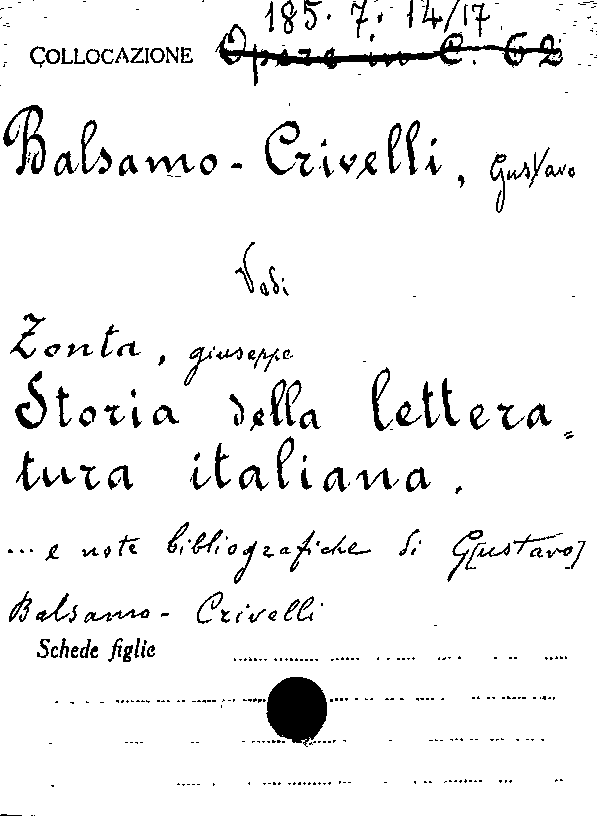 185. 7. 14/17
COLLOCAZIONE Opere in C. 62
Balsamo-Crivelli, Gustavo
Vedi
Zonta, giuseppe
Storia della lettera=
tura italiana.
... e note bibliografiche di G[ustavo]
Balsamo-Crivelli
Schede figlie